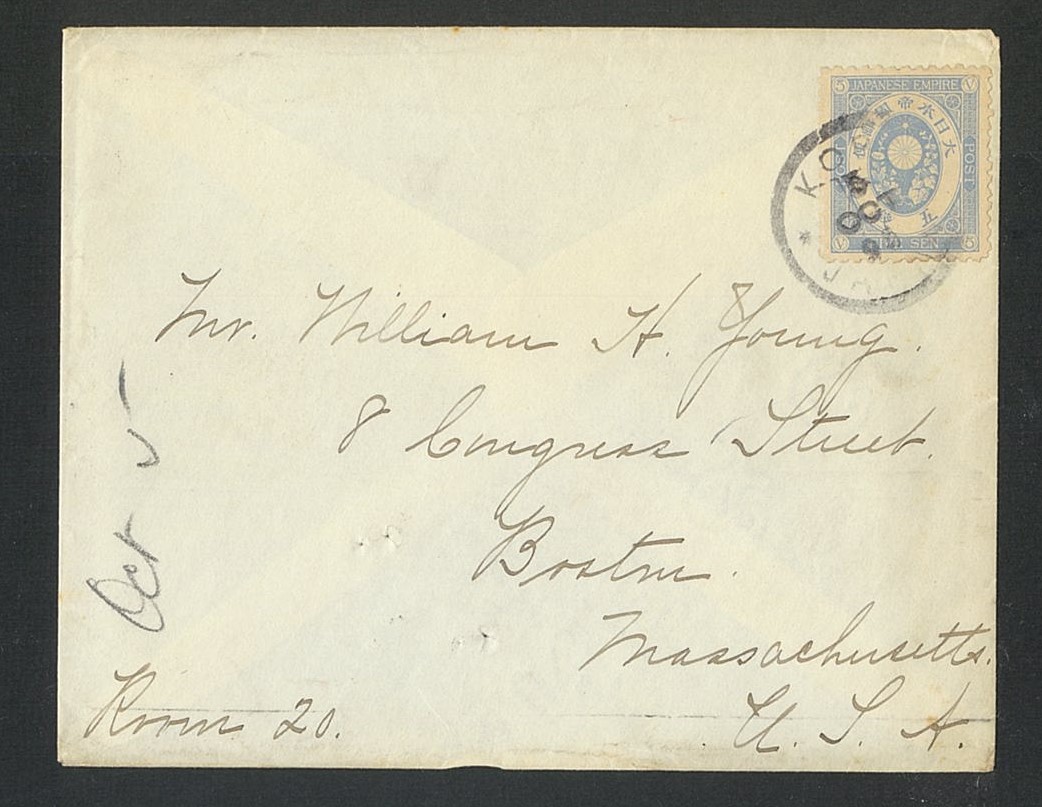 5 JAPANESE EMPIRE V
大日本帝國郵便
POST
POST
五
V SEN 5
KO
* JA
Mr. William H. Young.
8 Congress Street.
Boston.
Massachusetts.
U. S. A.
Room 20.
Oct 5